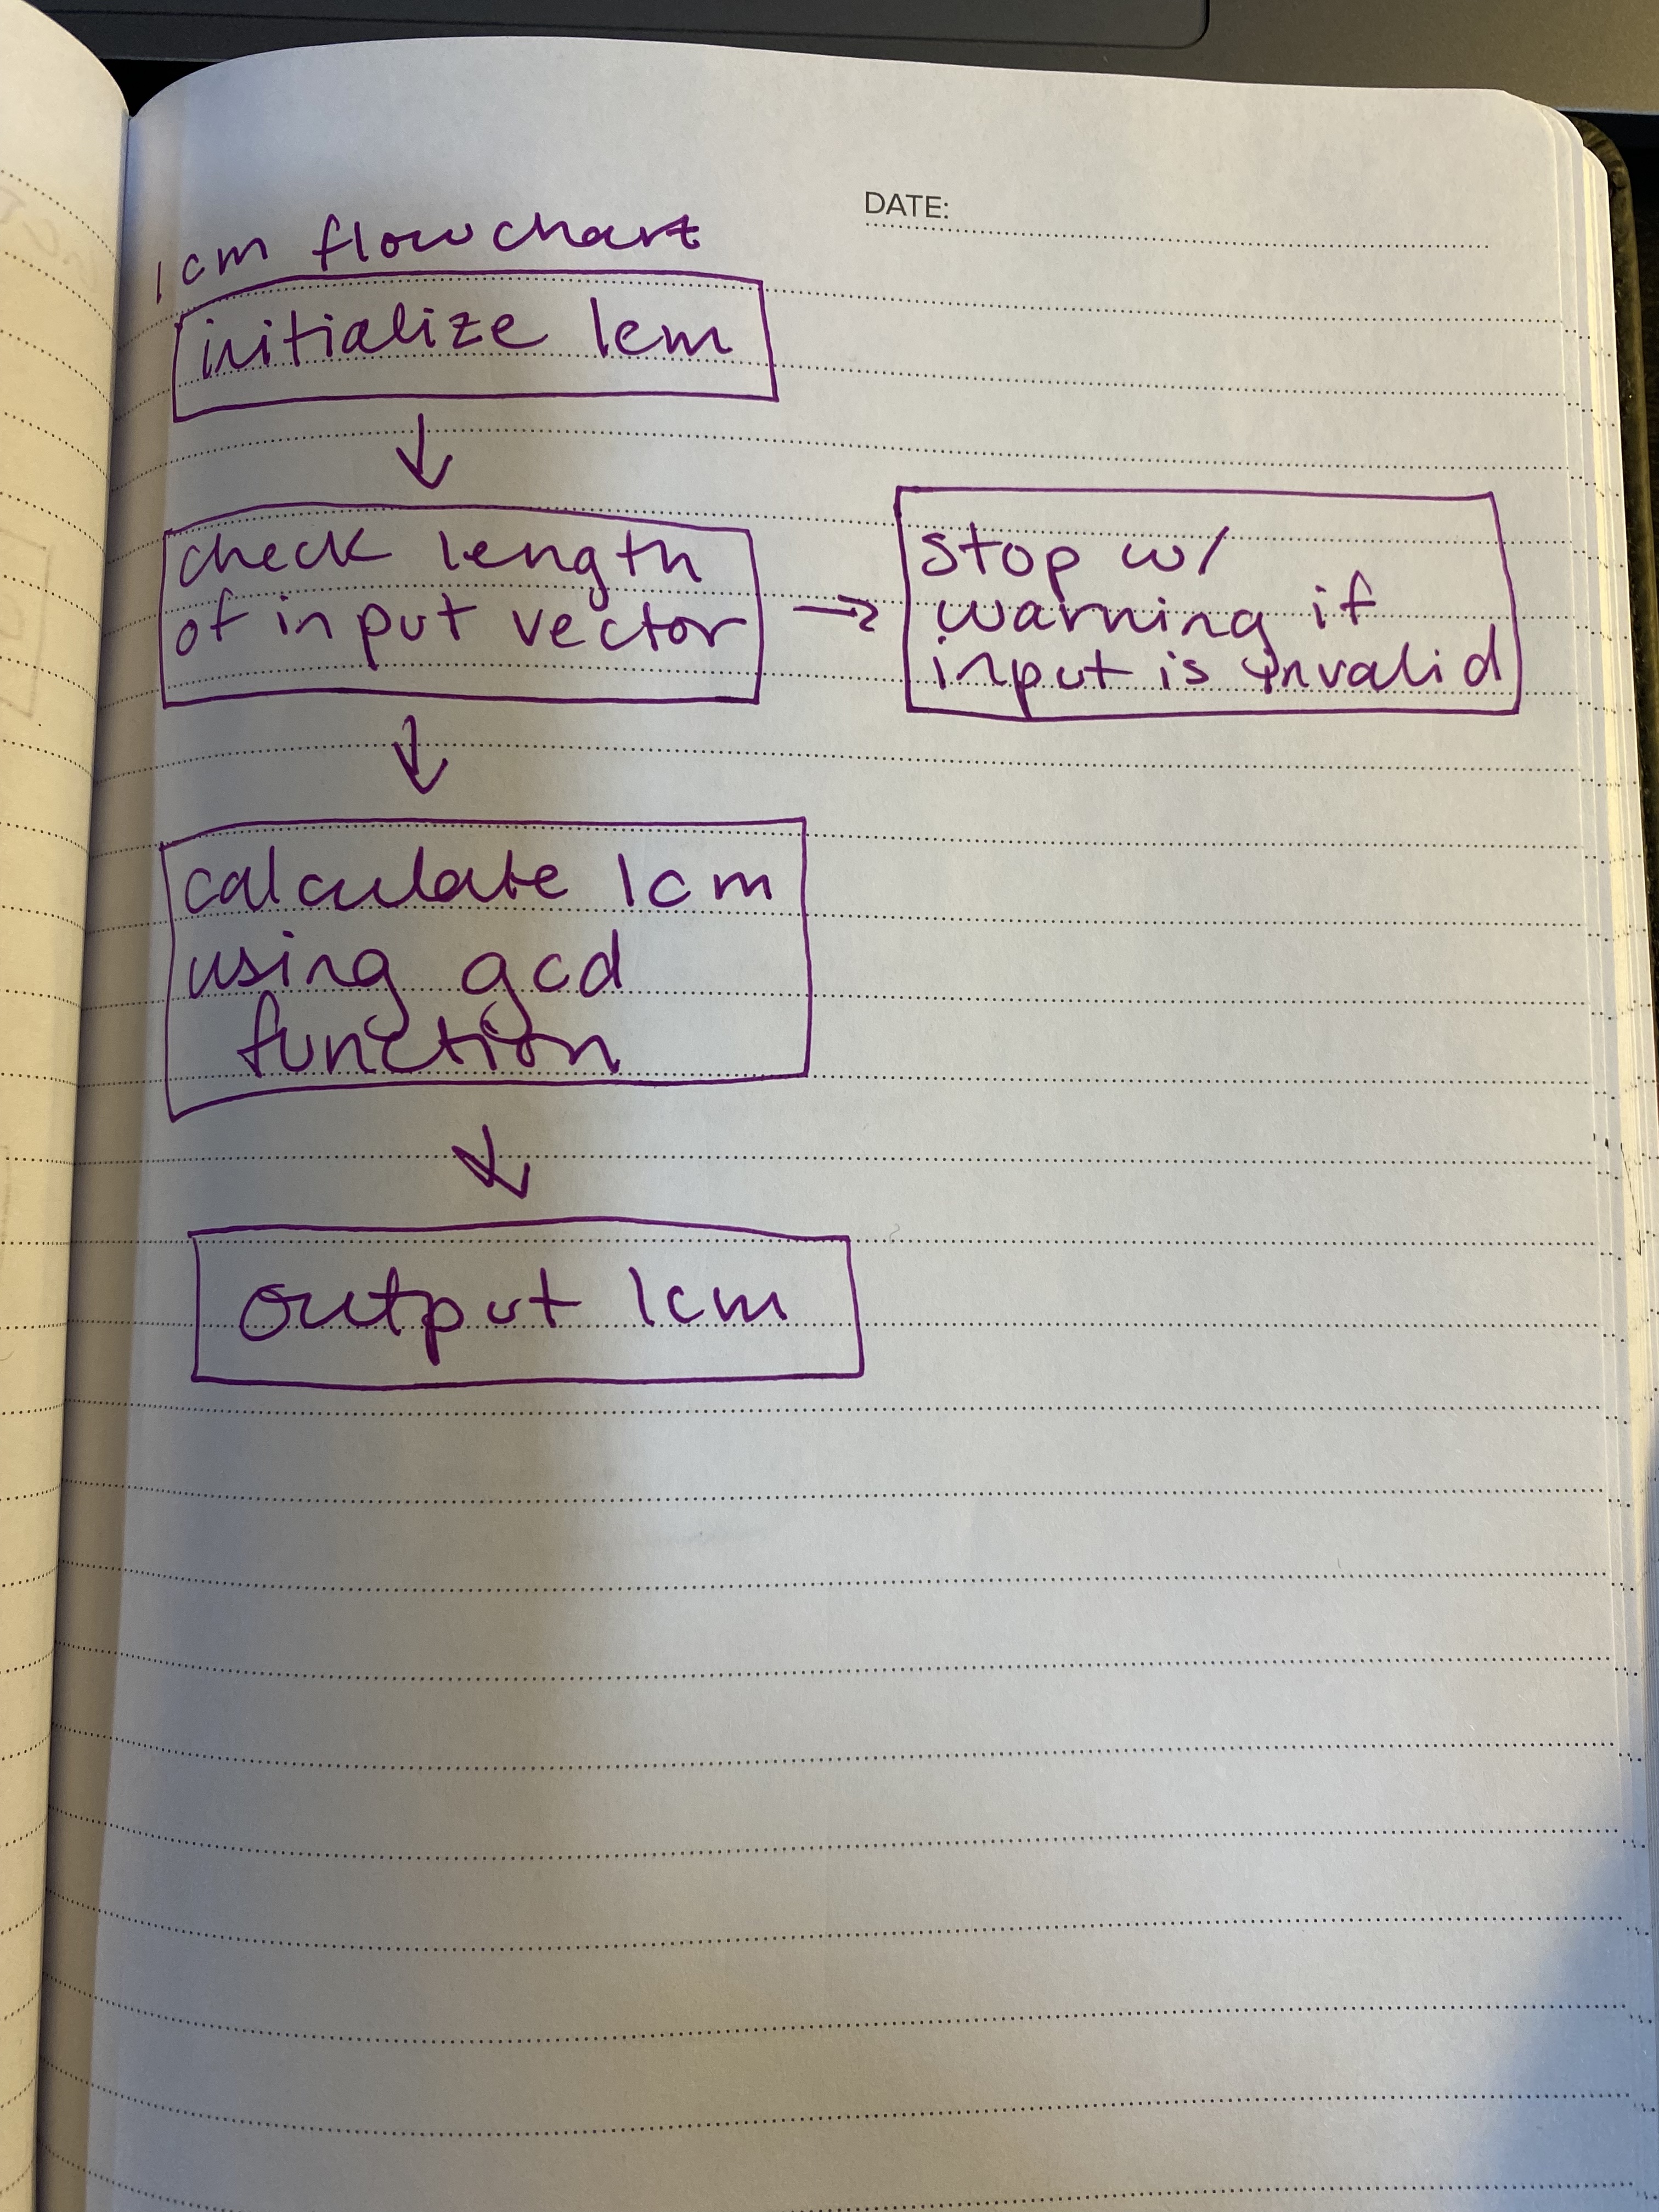 DATE:
lcm flowchart
initialize lcm
check length
of input vector
stop w/
warning if
input is invalid
calculate lcm
using gcd
function
output lcm